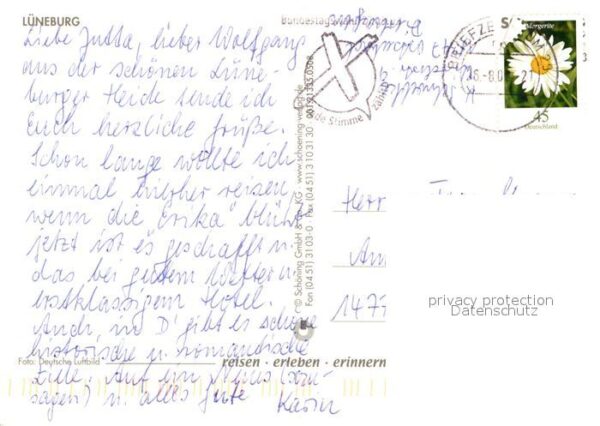 LÜNEBURG
Liebe Jutta, lieber Wolfgang
aus der schönen Lüne-
burger Heide sende ich
Euch herzliche Grüße.
Schon lange wollte ich
einmal hierher reisen,
wenn die "Erika" blüht
jetzt ist es geschafft u.
das bei gutem Wetter u.
erstklassigem Hotel.
Auch in D' gibt es schöne
historische u. romantische
Ziele. Auf ein Neues (so
sagen) u. alles Gute
Karin
Foto: Deutsche Luftbild
reisen · erleben · erinnern
© Schöning GmbH & Co. KG · www.schoening-verlag.de
Fon (04 51) 31 03-0 · Fax (04 51) 3 10 31 30
Bundestagswahl
Stimme zählt
BRIEFZE
21
Margerite
45
Deutschland
Herr
1477
privacy protection
Datenschutz